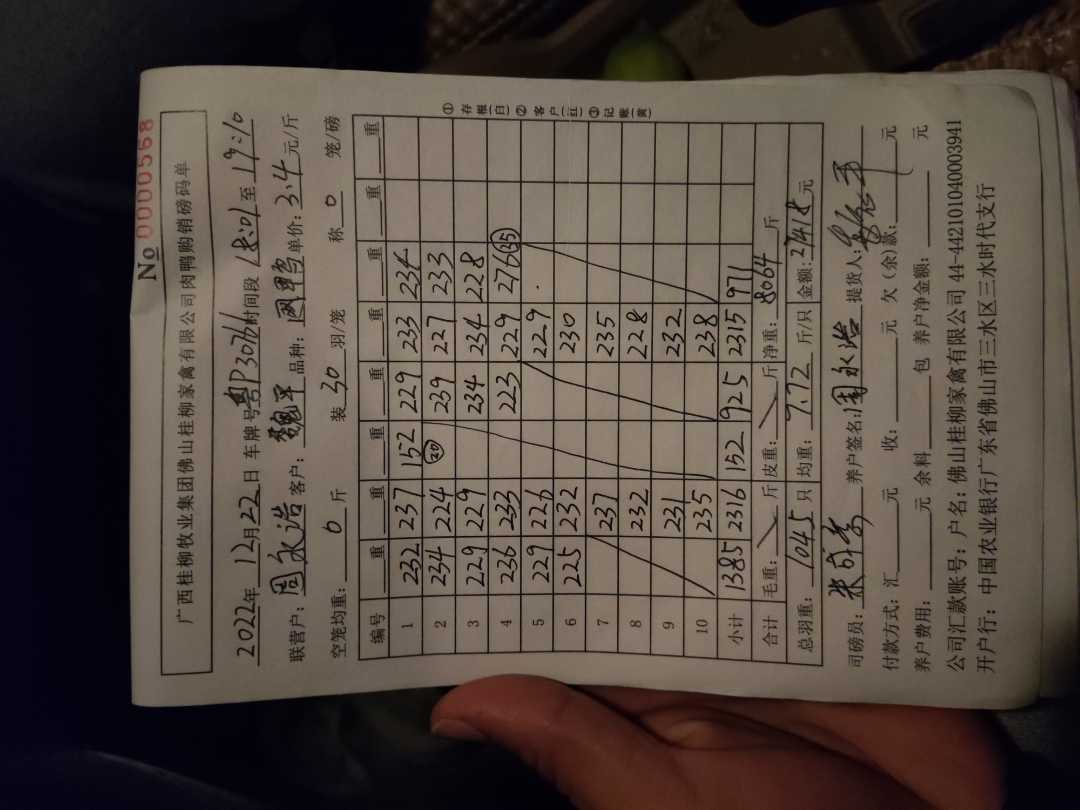 No 0000568
广西桂柳牧业集团佛山桂柳家禽有限公司肉鸭购销磅码单
2022年12月22日 车牌号粤P30761时间段18:01至19:10
联营户:周永浩 客户:魏平 品种:国鸭 单价:3.4元/斤
空笼均重:6斤 装30羽/笼 称0笼/磅
编号 重 重 重 重 重 重 重 重
1 232 237 152 229 233 234
2 234 224 (20) 239 227 233
3 229 229 234 234 228
4 236 233 223 229 276(35)
5 229 226 229
6 225 232 230
7 237 235
8 232 228
9 231 232
10 235 238
小计 1385 2316 152 925 2315 971
合计 毛重: 斤 皮重: 斤 净重:8064斤
总羽重:1045只 均重:7.72斤/只 金额:27418元
①存根(白)②客户(红)③记账(黄)
司磅员: 养户签名:周永浩 提货人:
付款方式:汇 元 收: 元 欠(余)款: 元
养户费用: 元 余料 包 养户净金额: 元
公司汇款账号:户名:佛山桂柳家禽有限公司 44-442101040003941
开户行:中国农业银行广东省佛山市三水区三水时代支行